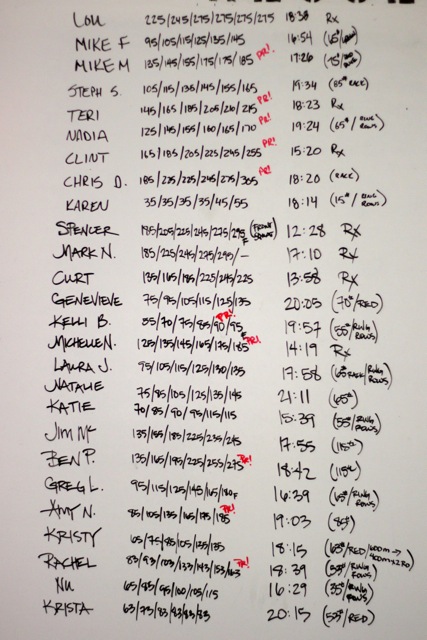 LOU 225/245/275/275/275/275 18:38 Rx
MIKE F 95/105/115/125/135/145 16:54
MIKE M 135/145/155/175/175/185 PR! 17:26
STEPH S. 105/115/135/145/155/165 19:34 (85# RACK)
TERI 145/165/185/205/210/215 PR! 18:23 Rx
NADIA 125/145/155/160/165/170 PR! 19:24 (65#/RING ROWS)
CLINT 165/185/205/225/245/255 PR! 15:20 Rx
CHRIS D. 185/225/225/245/275/305 PR! 18:20 (RACK)
KAREN 35/35/35/35/45/55 18:14 (15#/RING ROWS)
SPENCER 185/205/225/245/275/295 F (FRONT SQUATS) 12:28 Rx
MARK N. 185/225/245/275/295/— 17:10 Rx
CURT 135/165/185/225/245/225 13:58 Rx
GENEVIEVE 75/95/105/115/125/135 20:05 (70#/RED)
KELLI B. 55/70/75/85/90/95 F PR! 19:57 (55#/RING ROWS)
MICHELLE N. 125/135/145/165/175/185 PR! 14:19 Rx
LAURA J. 95/105/115/125/130/135 17:58 (65# RACK/RING ROWS)
NATALIE 75/95/105/125/135/145 21:11 (65#)
KATIE 70/85/90/95/115/115 15:39 (55#/RING ROWS)
JIM MC 135/155/185/225/235/245 17:55 (115#)
BEN P. 135/165/195/225/255/275 PR! 18:42 (115#)
GREG L. 95/115/125/145/165/180 F 16:39 (65#/RING ROWS)
AMY N. 85/105/135/165/175/185 PR! 19:03 (85#)
KRISTY 65/75/85/105/125/135 18:15 (65#/RED/600m → 400m x 2 RD)
RACHEL 83/93/103/133/143/153/163 PR! 18:39 (55#/RING ROWS)
NU 65/85/95/100/105/115 16:29 (35#/RING ROWS)
KRISTA 63/73/83/83/83/83 20:15 (55#/RED)